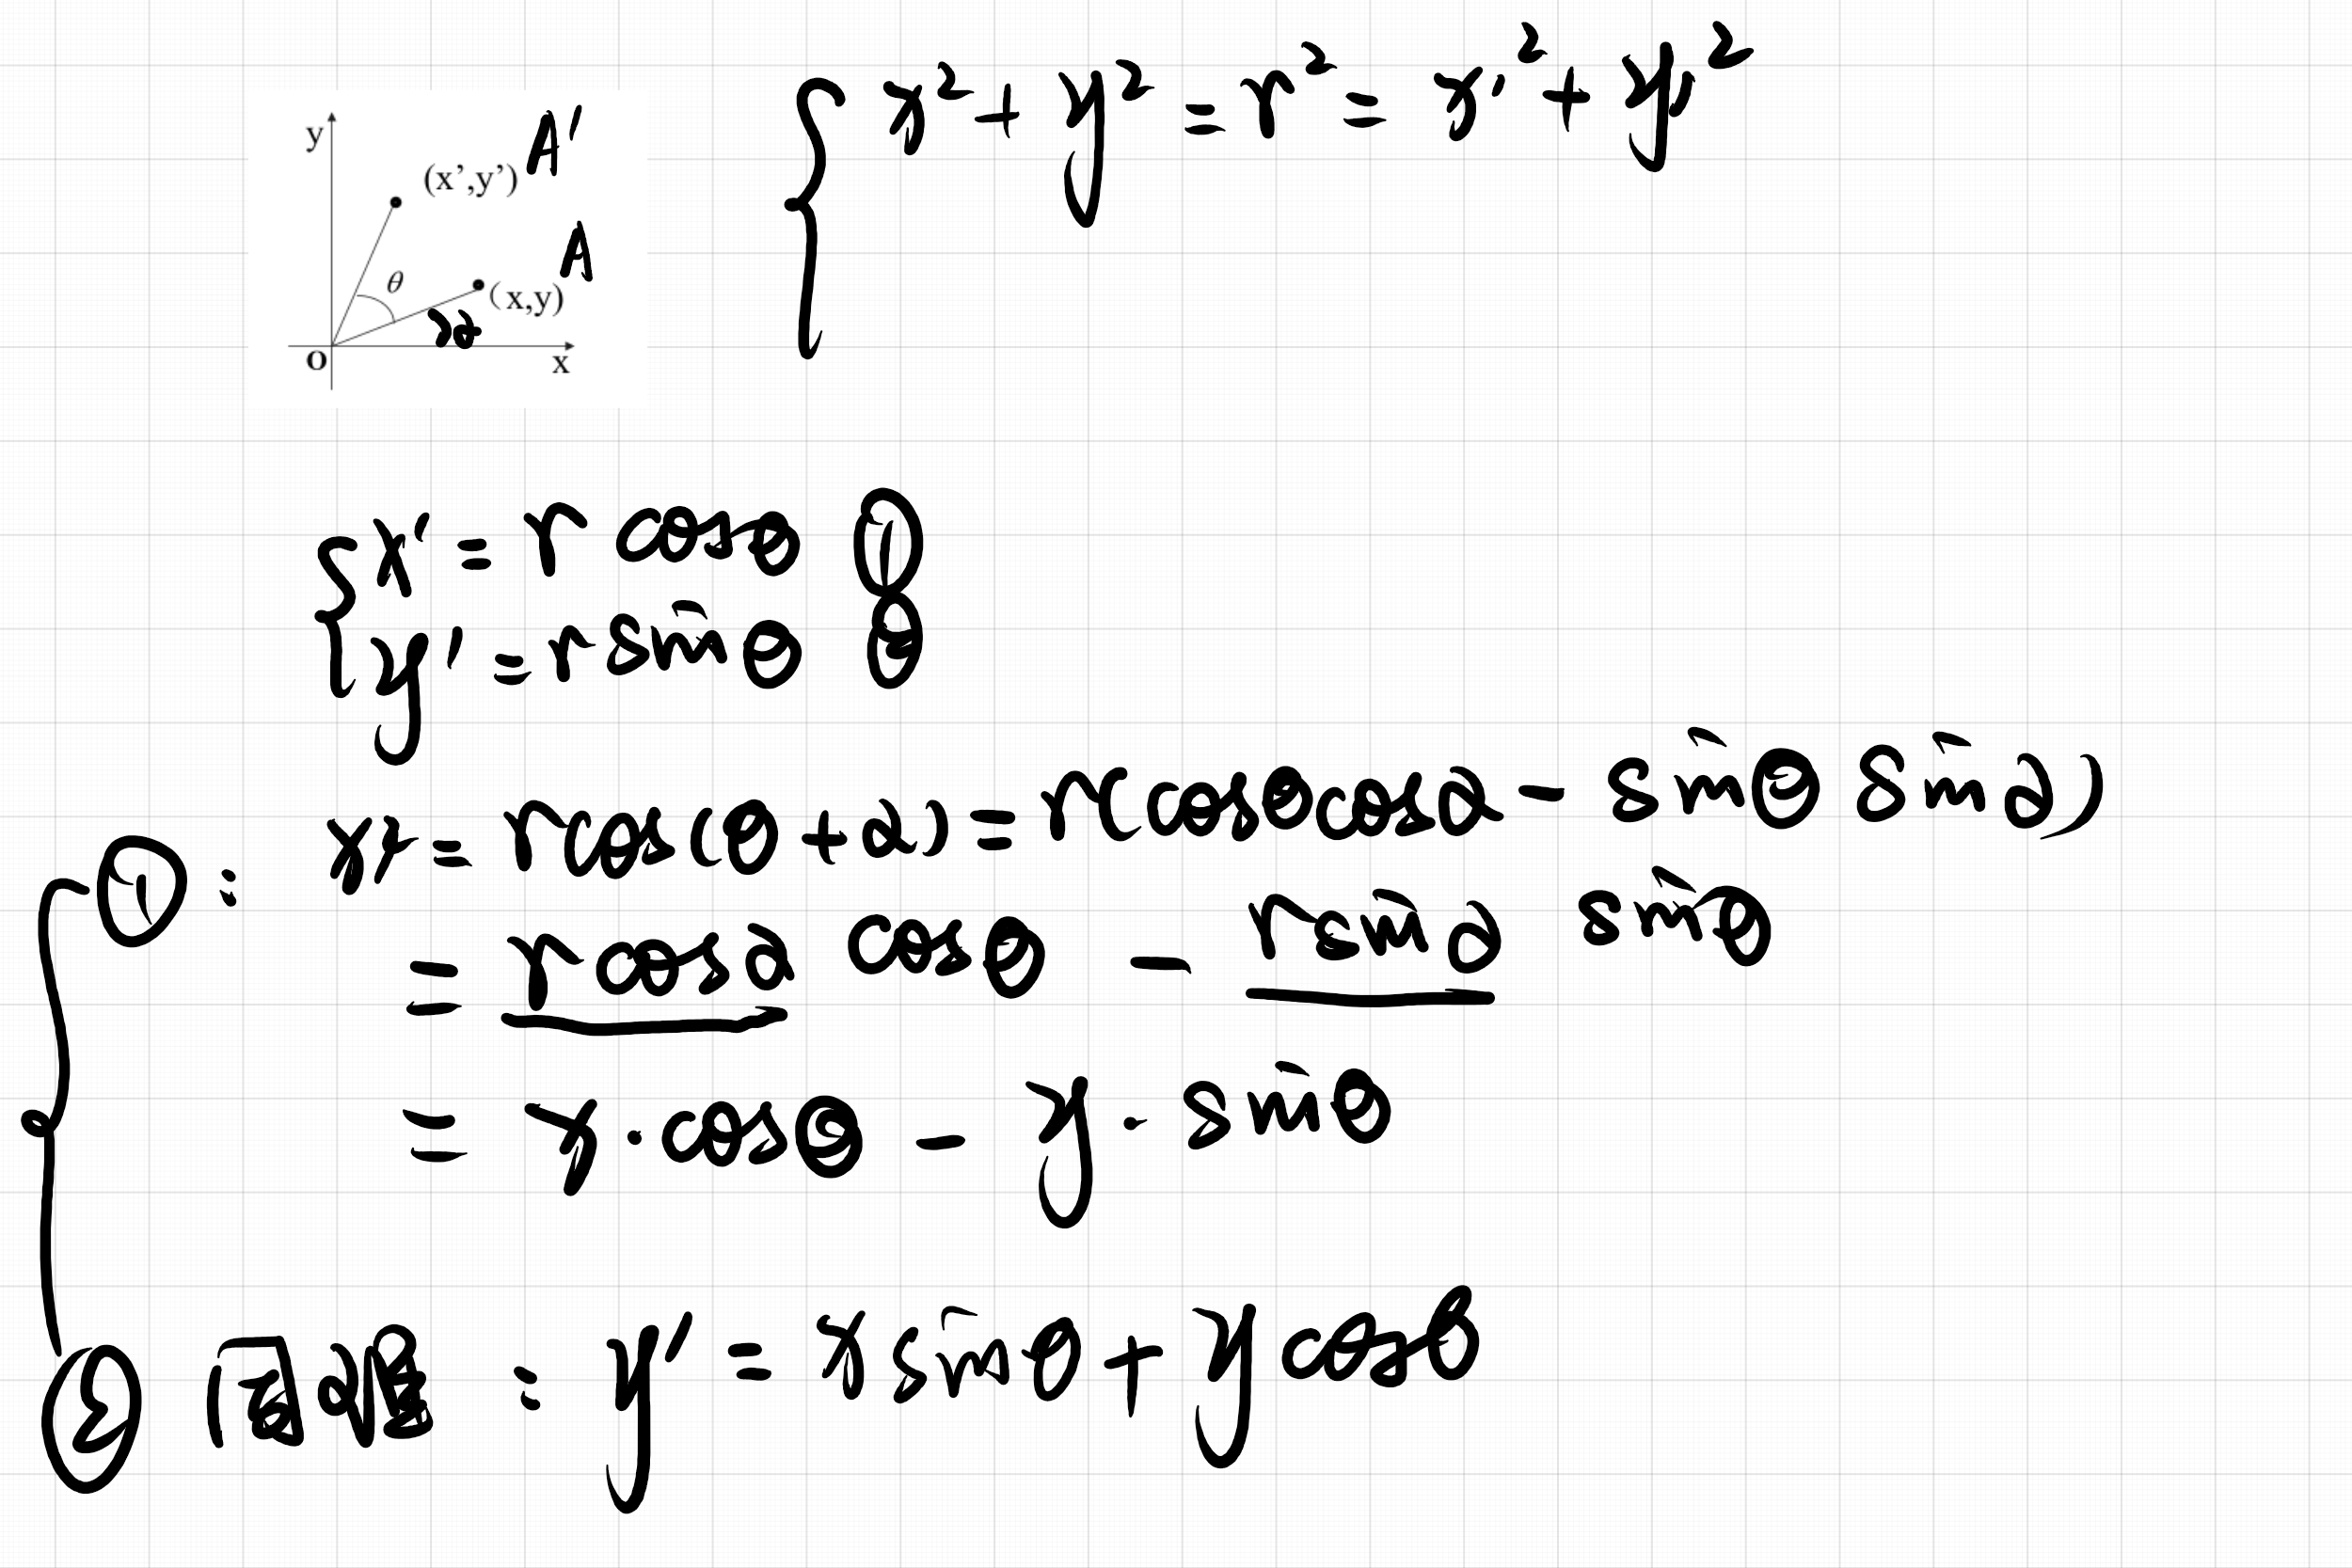 x² + y² = r² = x'² + y'²
y
A'
(x',y')
A
θ
(x,y)
α
O
x
x' = r cosθ ①
y' = r sinθ ②
①: x' = r cos(θ+α) = r(cosθcosα - sinθ sinα)
= r cosα cosθ - r sinα sinθ
= x·cosθ - y·sinθ
② 同理: y' = x sinθ + y cosθ